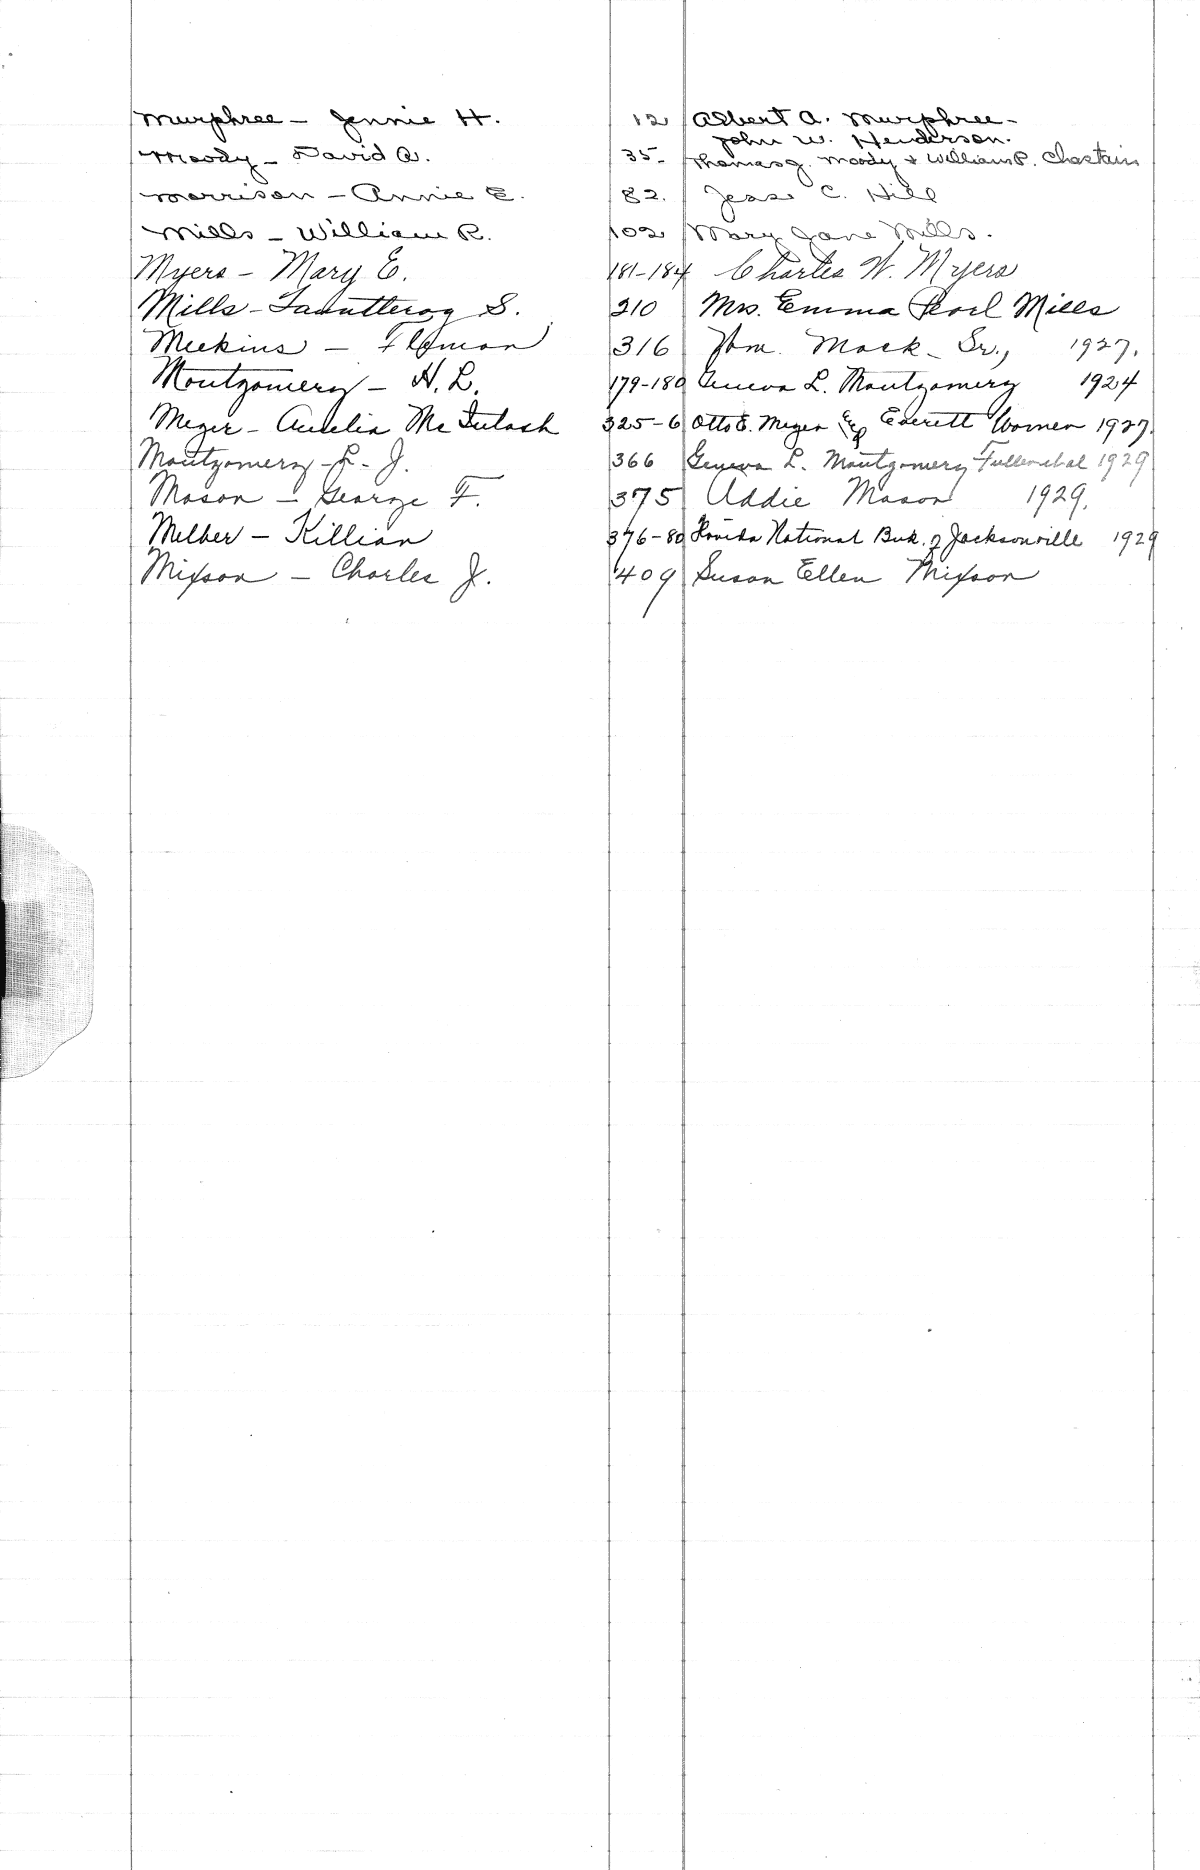 Murphree - Jennie H. 12 Albert A. Murphree -
John W. Henderson.
Moody - David A. 35- Thomas J. Moody & William P. Chastain
Morrison - Annie E. 82. Jesse C. Hill
Mills - William R. 102 Mary Jane Mills.
Myers - Mary E. 181-184 Charles W. Myers
Mills - S. 210 Mrs. Emma Pearl Mills
Meekins - 316 Wm. Mack Sr., 1927.
Montgomery - H. L. 179-180 Geneva L. Montgomery 1924
Meyer - Aurelia McIntosh 325-6 Otto E. Meyer Everett 1927.
Montgomery - L. J. 366 Geneva L. Montgomery 1929
Mason - George F. 375 Addie Mason 1929.
Melber - Killian 376-80 Florida National Bnk. of Jacksonville 1929
Mixson - Charles J. 409 Susan Ellen Mixson